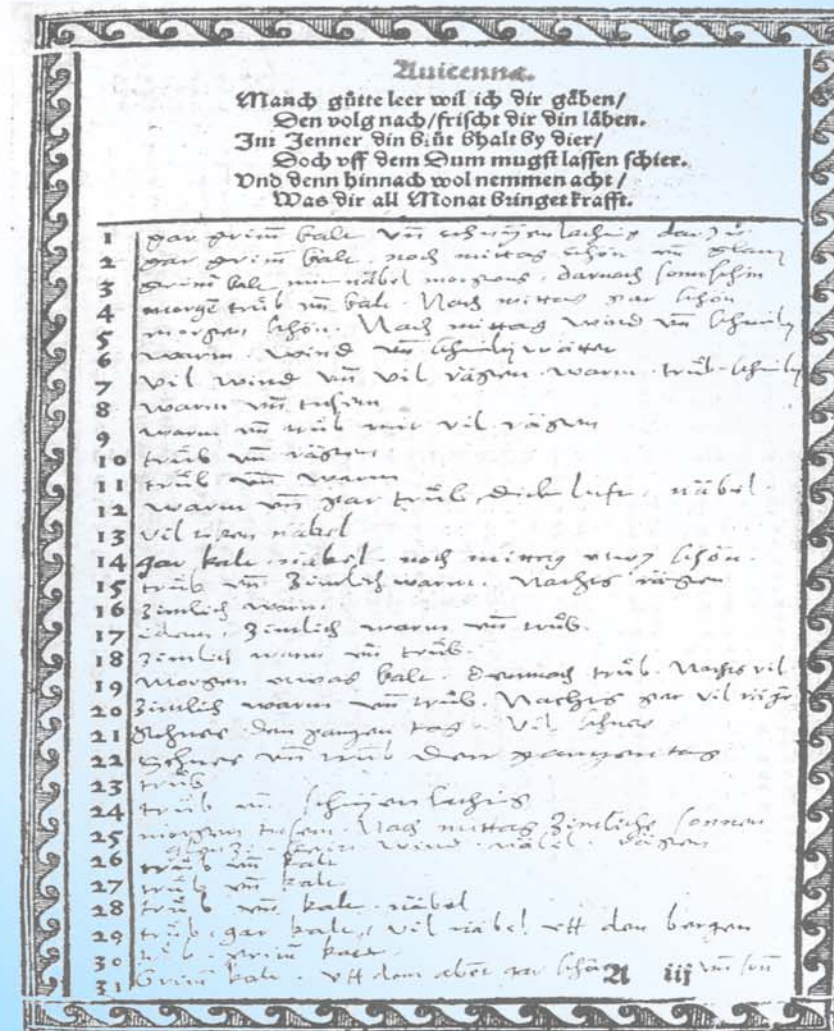 Auicenna.
Manch gůtte leer wil ich dir gåben/
Den volg nach/frischt dir din låben.
Im Jenner din blůt bhalt by dier/
Doch vff dem Dum mugst lassen schier.
Vnd denn hinnach wol nemmen acht/
Was dir all Monat bringet krafft.
1 gar grim̄ kalt vn̄
2 gar grim̄ kalt. noch mittag schön vn̄ glantz
3 grim̄ kalt mit näbel morgens. darnach sonnschin
4 morgē trüb vn̄ kalt. Nach mittag gar schön
5 morgen schön. Nach mittag wind vn̄
6 warm. wind vn̄ wätter
7 vil wind vn̄ vil rägen. warm. trüb.
8 warm vn̄
9 warm vn̄ trüb mit vil rägen
10 trüb vn̄ rägen
11 trüb vn̄ warm
12 warm vn̄ gar trüb. dick luft. näbel.
13 vil näbel
14 gar kalt. näbel. noch mittag schön.
15 trüb vn̄ zimlich warm. Nachts rägen
16 zimlich warm
17 idem. zimlich warm vn̄ trüb.
18 zimlich warm vn̄ trüb.
19 Morgen etwas kalt. trüb. Nachts vil
20 zimlich warm vn̄ trüb. Nachts gar vil
21 Schnee den gantzen tag. vil schnee
22 Schnee vn̄ trüb den gantzen tag
23 trüb
24 trüb vn̄
25 morgen. Nach mittag zimlichs sonnen
wind. näbel. rägen
26 trüb vn̄ kalt
27 trüb vn̄ kalt
28 trüb vn̄ kalt. näbel
29 trüb. gar kalt. vil näbel vff den bergen
30 trüb. grim̄ kalt
31 Grim̄ kalt. vff den abet gar schön
A iij